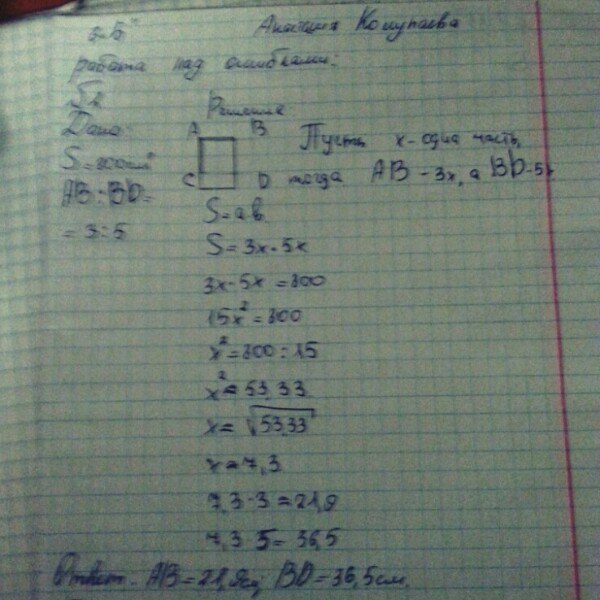 Анастасия Колупаева
работа над ошибками:
Дано: Решение
A B
S=800см² Пусть x - одна часть,
C D тогда AB - 3x, а BD - 5x
AB : BD =
= 3:5
S=ab
S=3x·5x
3x·5x=800
15x²=800
x²=800:15
x²=53,33
x=√53,33
x=7,3
7,3·3=21,9
7,3·5=36,5
Ответ. AB=21,9см, BD=36,5см.